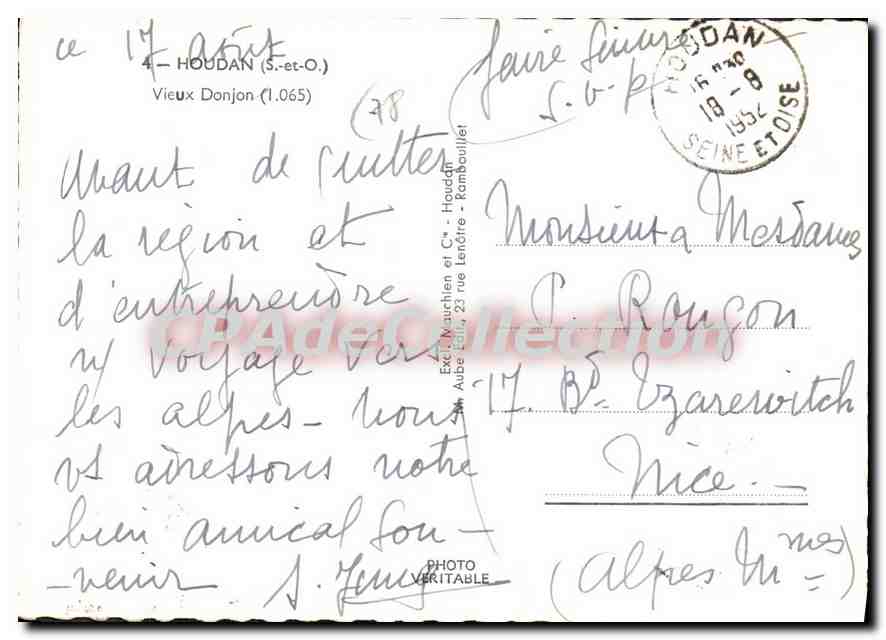 ce 17 août
4 — HOUDAN (S.-et-O.)
Vieux Donjon (1.065)
(78
Avant de quitter
la région et
d'entreprendre
n/ voyage vers
les alpes – nous
vs adressons notre
bien amical sou-
-venir
faire suivre
S.v.p
HOUDAN
18 - 8
1952
SEINE ET OISE
Excl. Mauchien et Cie - Houdan
Mr Aube Edit., 23 rue Lenôtre - Rambouillet
Monsieur & Mesdames
P. Rougon
17. Bd Tzarewitch
Nice. –
(Alpes Mmes)
PHOTO
VÉRITABLE
CPAdeCollection